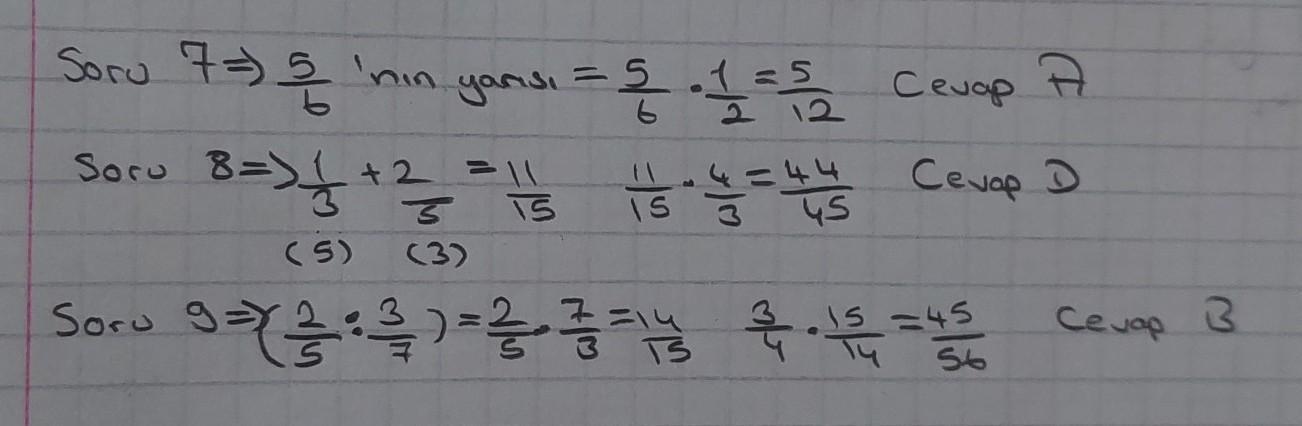 Soru 7 => 5/6 'nın yarısı = 5/6 . 1/2 = 5/12 Cevap A
Soru 8 => 1/3 + 2/5 = 11/15 11/15 . 4/3 = 44/45 Cevap D
(5) (3)
Soru 9 => (2/5 : 3/7) = 2/5 . 7/3 = 14/15 3/4 . 15/14 = 45/56 Cevap B